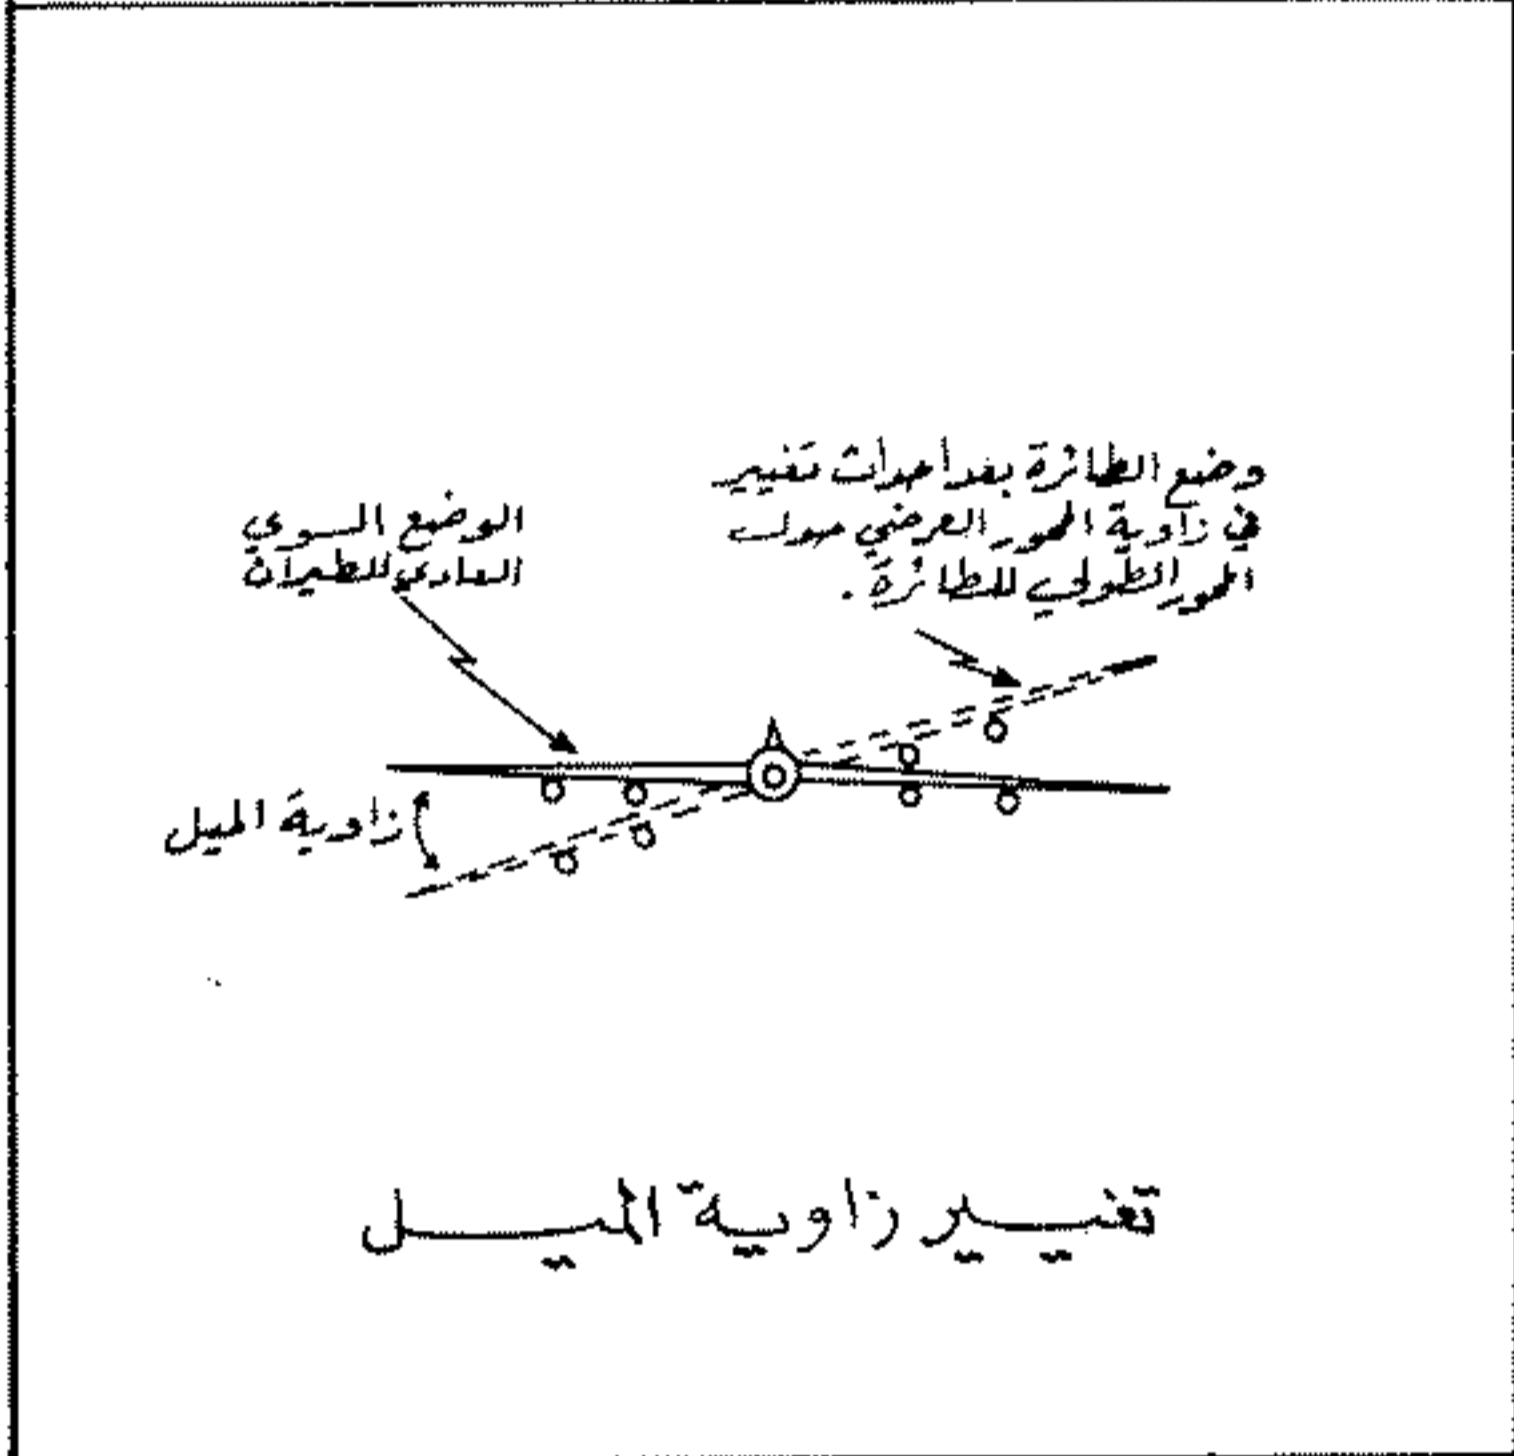 وضع الطائرة بعد احداث تغيير
في زاوية المحور العرضي حول
المحور الطولي للطائرة .
الوضع السوي
العادي للطيران
زاوية الميل
تغيير زاوية الميل